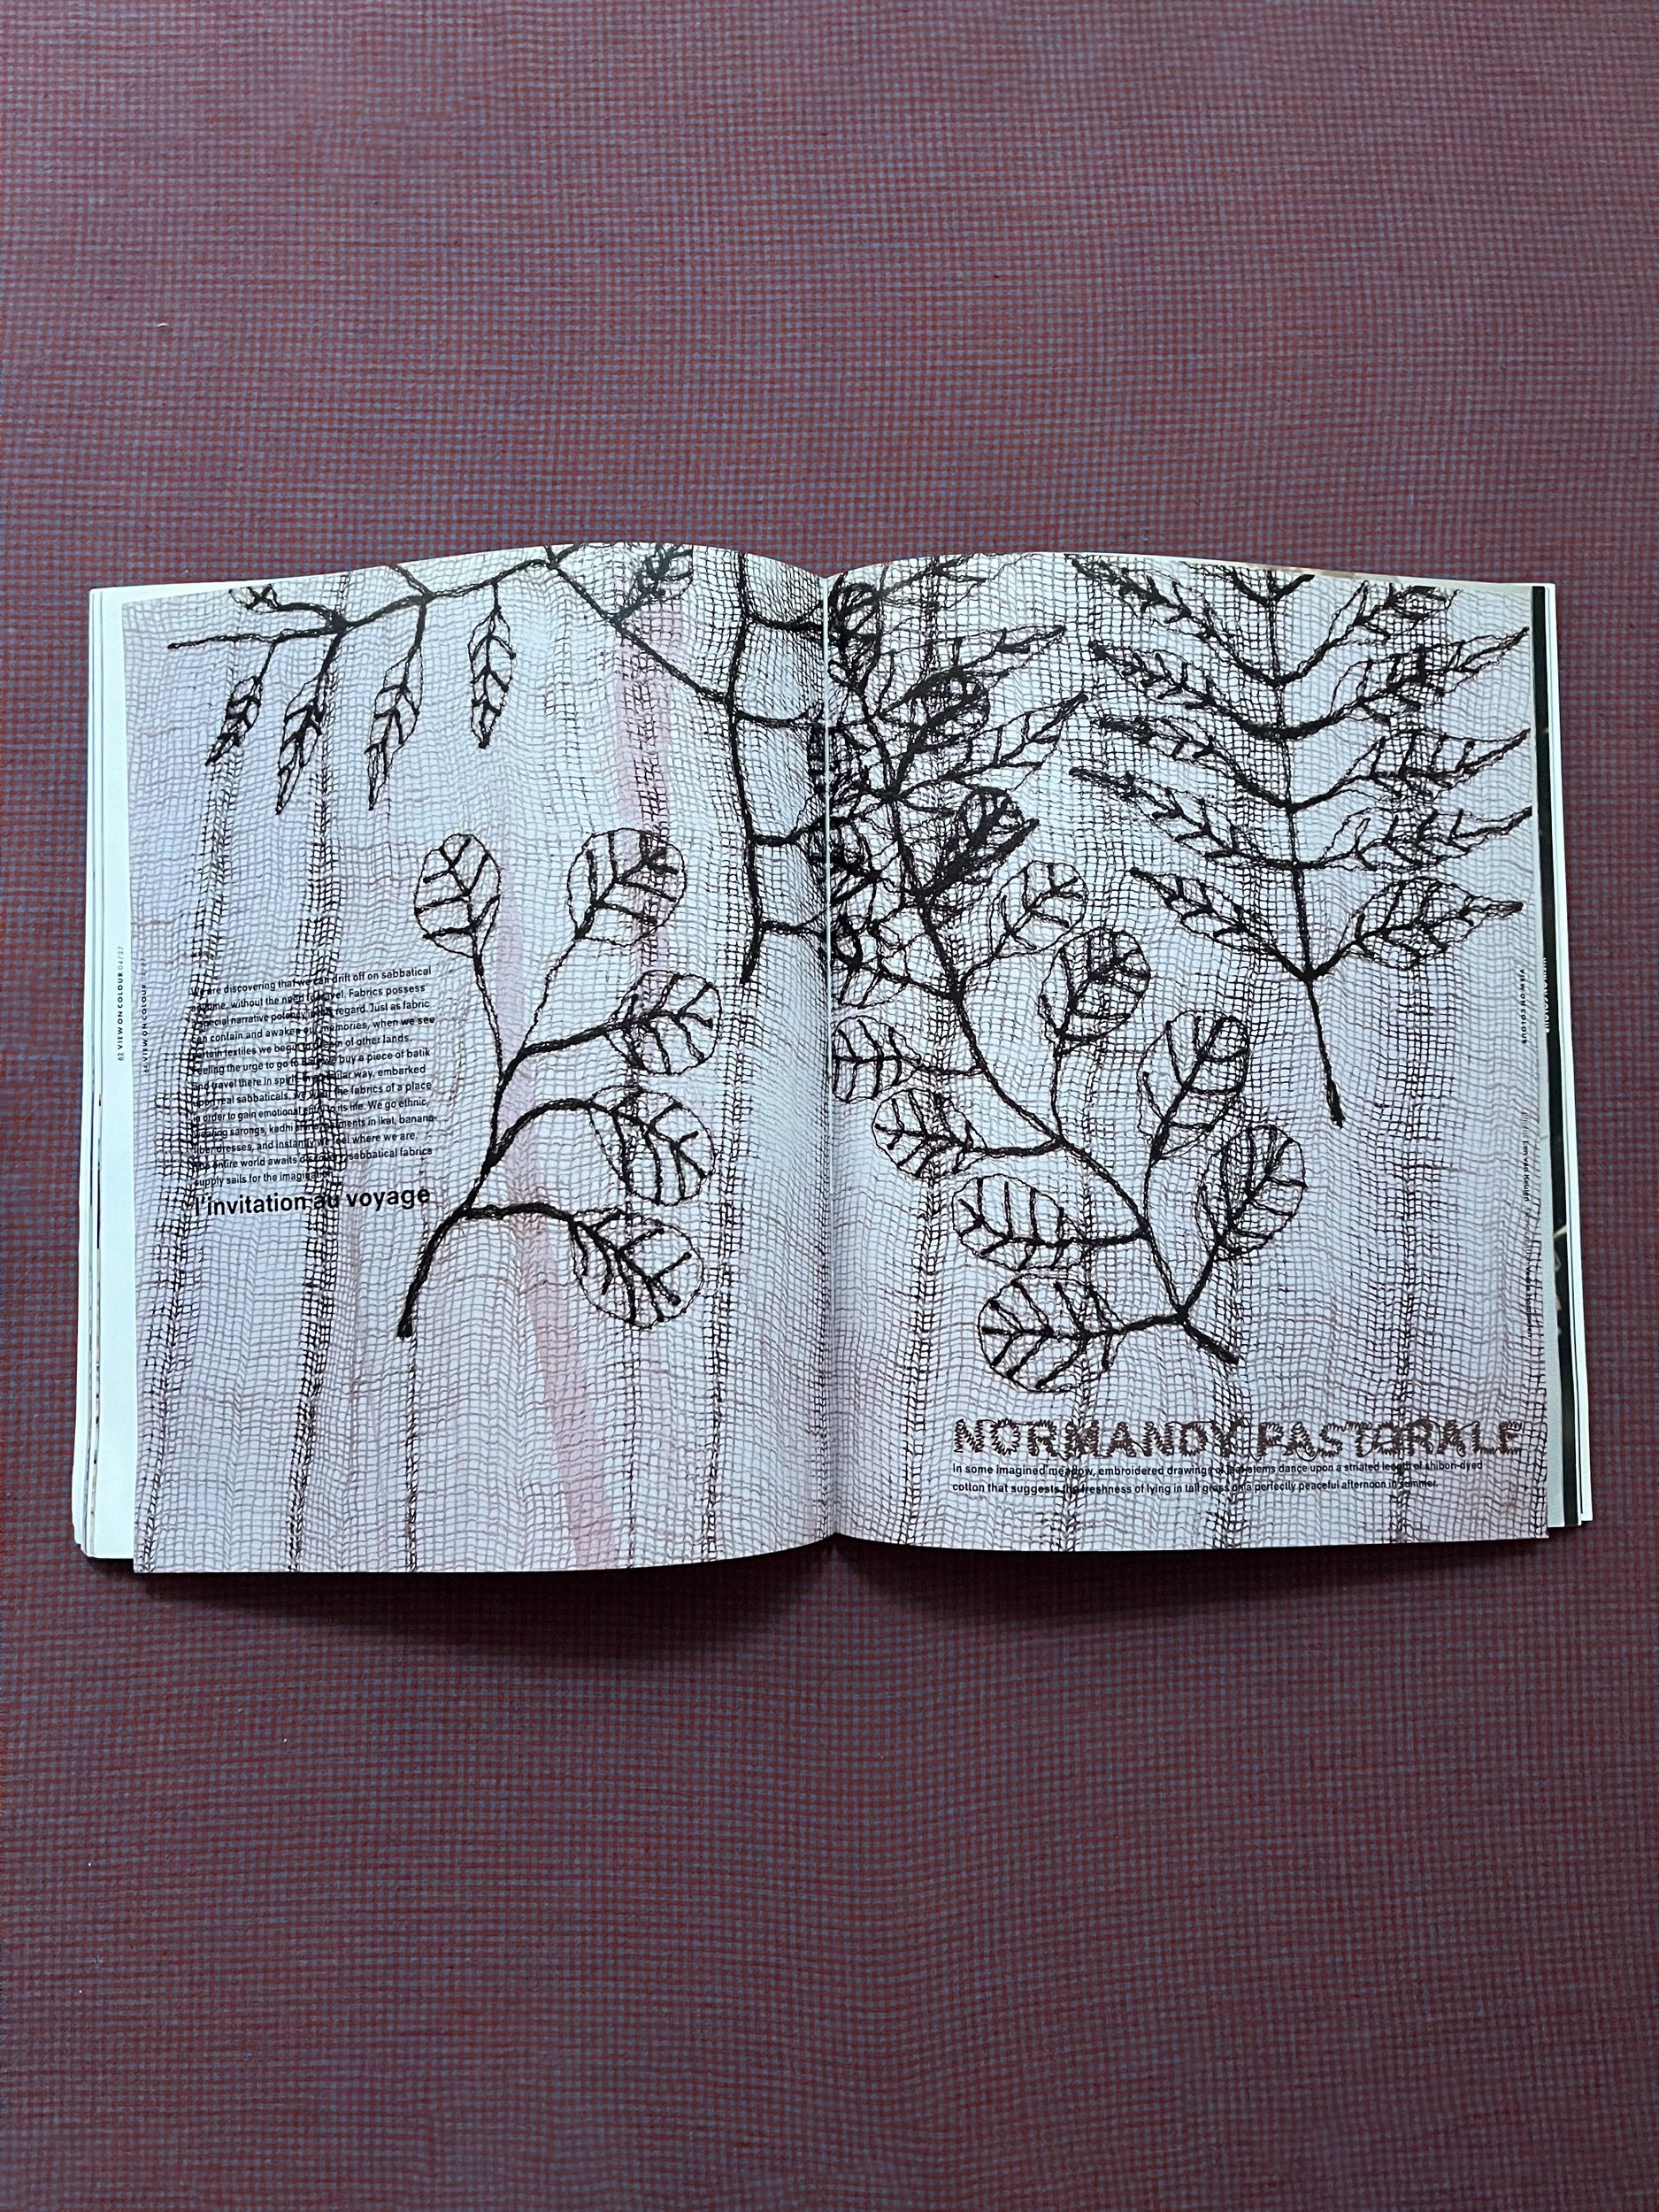 62 VIEW ON COLOUR 04/27
VIEW ON COLOUR
We are discovering that we can drift off on sabbatical
time, without the need to travel. Fabrics possess
special narrative potency in this regard. Just as fabric
can contain and awaken our memories, when we see
certain textiles we begin to dream of other lands.
Feeling the urge to go to we buy a piece of batik
and travel there in spirit. way, embarked
upon real sabbaticals, we the fabrics of a place
in order to gain emotional entry to its life. We go ethnic,
sarongs, kadhi in ikat, banana-
fiber dresses, and instantly we feel where we are.
entire world awaits sabbatical fabrics
supply sails for the
l'invitation au voyage
VIEW ON COLOUR
NORMANDY PASTORALE
In some imagined meadow, embroidered drawings of stems dance upon a striated length of shibori-dyed
cotton that suggests the freshness of lying in tall grass on a perfectly peaceful afternoon in summer.